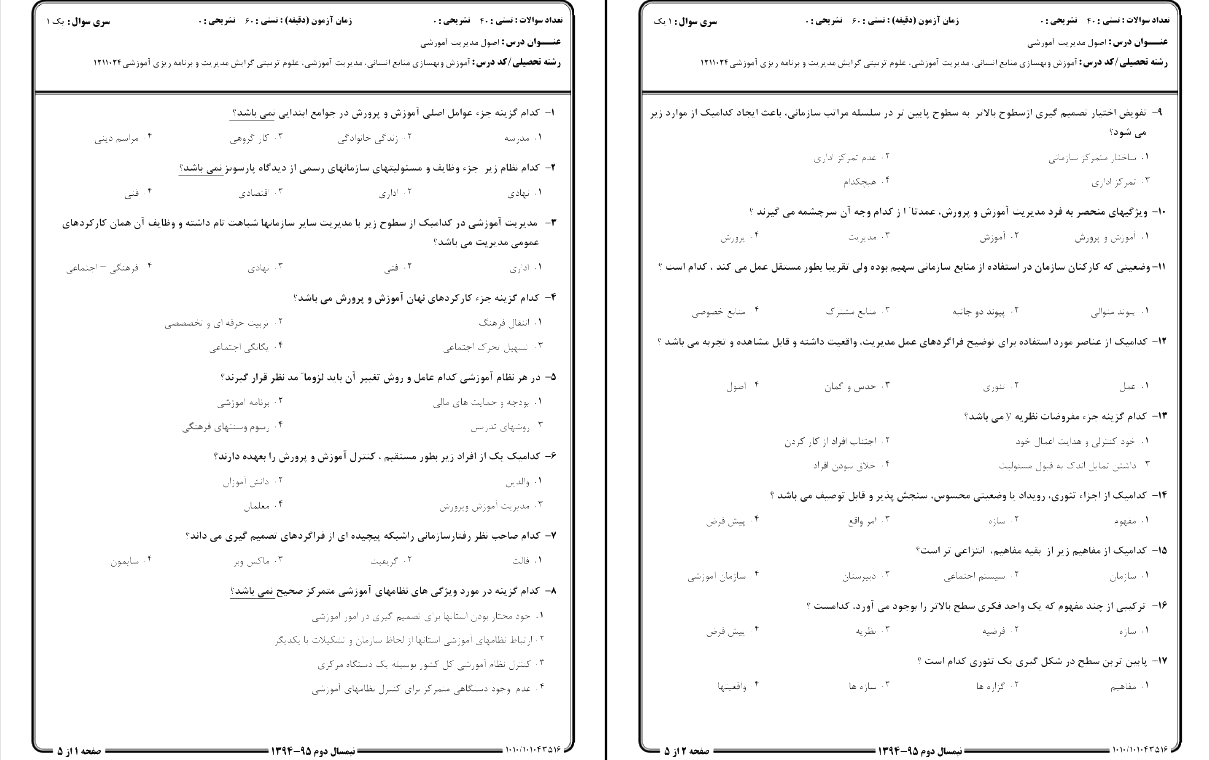 تعداد سوالات : تستی : ۴۰ تشریحی : ۰
زمان آزمون (دقیقه) : تستی : ۶۰ تشریحی : ۰
سری سوال : یک ۱
عنـــوان درس : اصول مدیریت آموزشی
رشته تحصیلی/کد درس : آموزش وبهسازی منابع انسانی، مدیریت آموزشی، علوم تربیتی گرایش مدیریت و برنامه ریزی آموزشی ۱۲۱۱۰۲۴
۱- کدام گزینه جزء عوامل اصلی آموزش و پرورش در جوامع ابتدایی نمی باشد؟
۱. مدرسه ۲. زندگی خانوادگی ۳. کار گروهی ۴. مراسم دینی
۲- کدام نظام زیر جزء وظایف و مسئولیتهای سازمانهای رسمی از دیدگاه پارسونز نمی باشد؟
۱. نهادی ۲. اداری ۳. اقتصادی ۴. فنی
۳- مدیریت آموزشی در کدامیک از سطوح زیر با مدیریت سایر سازمانها شباهت تام داشته و وظایف آن همان کارکردهای
عمومی مدیریت می باشد؟
۱. اداری ۲. فنی ۳. نهادی ۴. فرهنگی – اجتماعی
۴- کدام گزینه جزء کارکردهای نهان آموزش و پرورش می باشد؟
۱. انتقال فرهنگ ۲. تربیت حرفه ای و تخصصی
۳. تسهیل تحرک اجتماعی ۴. یگانگی اجتماعی
۵- در هر نظام آموزشی کدام عامل و روش تغییر آن باید لزوما" مد نظر قرار گیرند؟
۱. بودجه و حمایت های مالی ۲. برنامه آموزشی
۳. روشهای تدریس ۴. رسوم وسنتهای فرهنگی
۶- کدامیک یک از افراد زیر بطور مستقیم ، کنترل آموزش و پرورش را بعهده دارند؟
۱. والدین ۲. دانش آموزان
۳. مدیریت آموزش وپرورش ۴. معلمان
۷- کدام صاحب نظر رفتارسازمانی راشبکه پیچیده ای از فراگردهای تصمیم گیری می داند؟
۱. فالت ۲. گریفیث ۳. ماکس وبر ۴. سایمون
۸- کدام گزینه در مورد ویژگی های نظامهای آموزشی متمرکز صحیح نمی باشد؟
۱. خود مختار بودن استانها برای تصمیم گیری در امور آموزشی
۲. ارتباط نظامهای آموزشی استانها از لحاظ سازمان و تشکیلات با یکدیگر
۳. کنترل نظام آموزشی کل کشور بوسیله یک دستگاه مرکزی
۴. عدم وجود دستگاهی متمرکز برای کنترل نظامهای آموزشی
۱۰۱۰/۱۰۱۰۴۳۵۱۶
نیمسال دوم ۹۵-۱۳۹۴
صفحه ۱ از ۵
تعداد سوالات : تستی : ۴۰ تشریحی : ۰
زمان آزمون (دقیقه) : تستی : ۶۰ تشریحی : ۰
سری سوال : ۱ یک
عنـــوان درس : اصول مدیریت آموزشی
رشته تحصیلی/کد درس : آموزش وبهسازی منابع انسانی، مدیریت آموزشی، علوم تربیتی گرایش مدیریت و برنامه ریزی آموزشی ۱۲۱۱۰۲۴
۹- تفویض اختیار تصمیم گیری ازسطوح بالاتر به سطوح پایین تر در سلسله مراتب سازمانی، باعث ایجاد کدامیک از موارد زیر
می شود؟
۱. ساختار متمرکز سازمانی ۲. عدم تمرکز اداری
۳. تمرکز اداری ۴. هیچکدام
۱۰- ویژگیهای منحصر به فرد مدیریت آموزش و پرورش، عمدتا" ا ز کدام وجه آن سرچشمه می گیرند ؟
۱. آموزش و پرورش ۲. آموزش ۳. مدیریت ۴. پرورش
۱۱- وضعیتی که کارکنان سازمان در استفاده از منابع سازمانی سهیم بوده ولی تقریبا بطور مستقل عمل می کند ، کدام است ؟
۱. پیوند متوالی ۲. پیوند دو جانبه ۳. منابع مشترک ۴. منابع خصوصی
۱۲- کدامیک از عناصر مورد استفاده برای توضیح فراگردهای عمل مدیریت، واقعیت داشته و قابل مشاهده و تجربه می باشد ؟
۱. عمل ۲. تئوری ۳. حدس و گمان ۴. اصول
۱۳- کدام گزینه جزء مفروضات نظریه y می باشد؟
۱. خود کنترلی و هدایت اعمال خود ۲. اجتناب افراد از کار کردن
۳. داشتن تمایل اندک به قبول مسئولیت ۴. خلاق نبودن افراد
۱۴- کدامیک از اجزاء تئوری، رویداد یا وضعیتی محسوس، سنجش پذیر و قابل توصیف می باشد ؟
۱. مفهوم ۲. سازه ۳. امر واقع ۴. پیش فرض
۱۵- کدامیک از مفاهیم زیر از بقیه مفاهیم، انتزاعی تر است؟
۱. سازمان ۲. سیستم اجتماعی ۳. دبیرستان ۴. سازمان آموزشی
۱۶- ترکیبی از چند مفهوم که یک واحد فکری سطح بالاتر را بوجود می آورد، کدامست ؟
۱. سازه ۲. فرضیه ۳. نظریه ۴. پیش فرض
۱۷- پایین ترین سطح در شکل گیری یک تئوری کدام است ؟
۱. مفاهیم ۲. گزاره ها ۳. سازه ها ۴. واقعیتها
۱۰۱۰/۱۰۱۰۴۳۵۱۶
نیمسال دوم ۹۵-۱۳۹۴
صفحه ۲ از ۵